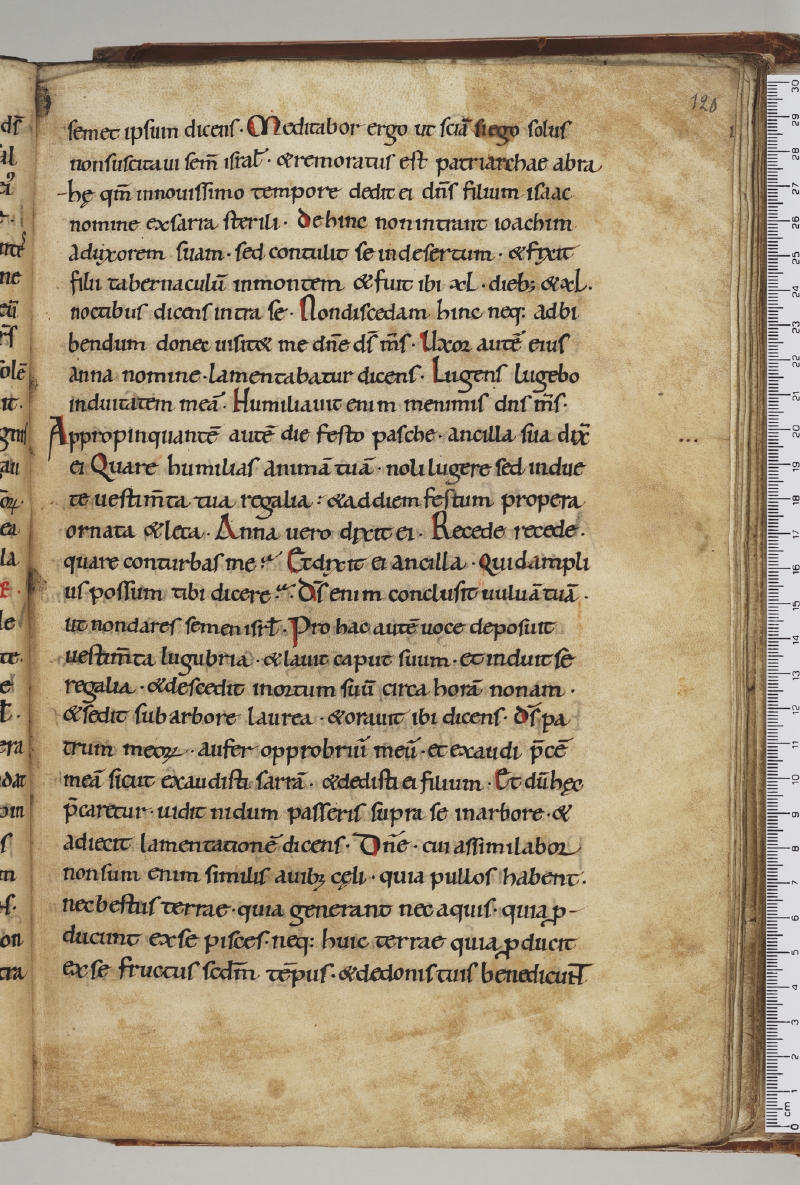 128
semet ipsum dicens· Meditabor ergo ut sciā si ego solus
non suscitaui sem̄ israł· & remoratus est patriarchae abra
-hę qm̄ in nouissimo tempore dedit ei dn̄s filium isaac
nomine ex sarra sterili· De hinc non intrauit ioachim
ad uxorem suam· sed contulit se in desertum· & fixit
filii tabernaculū in montem & fuit ibi xL· dieb; & xL·
noctibus dicens intra se· Non discedam hinc neq; ad bi
bendum donec uisit& me dn̄e ds̄ ms̄· Uxor autē eius
anna nomine· lamentabatur dicens· Lugens lugebo
in duitatem meā· Humiliauit enim me nimis dn̄s ms̄·
Appropinquantē autē die festo pasche· ancilla sua dix̄
ei Quare humilias animā tuā· noli lugere sed indue
te uestim̄ta tua regalia· & ad diem festum propera
ornata & leta· Anna uero dixit ei· Recede recede·
quare conturbas me· Et dixit ei ancilla· Quid ampli
us possum tibi dicere· Ds̄ enim conclusit uuluā tuā·
ut non dares semen isrł· Pro hac autē uoce deposuit
uestim̄ta lugubria· & lauit caput suum· et induit se
regalia· & descedit in ortum suū circa horā nonam·
& sedit sub arbore laurea· & orauit ibi dicens· Ds̄ pa
trum meoꝝ· aufer opprobriū meū· et exaudi p̄cē
meā sicut exaudisti sarrā· & dedisti ei filium· Et dū hęc
p̄caretur· uidit nidum passeris supra se in arbore· &
adiecit lamentationē dicens· Dn̄e· cui assimilabor
non sum enim similis auib; cęli· quia pullos habent·
nec bestiis terrae· quia generant nec aquis· quia ꝓ-
ducunt ex se pisces· neq; huic terrae quia ꝓducit
ex se fructus scdm̄ tēpus· & de donis tuis benedicunt